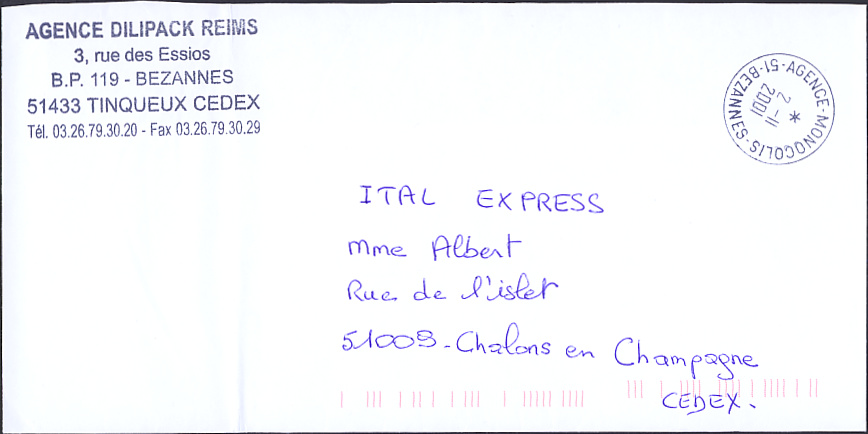 AGENCE DILIPACK REIMS
3, rue des Essios
B.P. 119 - BEZANNES
51433 TINQUEUX CEDEX
Tél. 03.26.79.30.20 - Fax 03.26.79.30.29
51-BEZANNES-AGENCE-MONOCOLIS
2 -11
2001
*
ITAL EXPRESS
Mme Albert
Rue de l'islet
51009 - Chalons en Champagne
CEDEX.